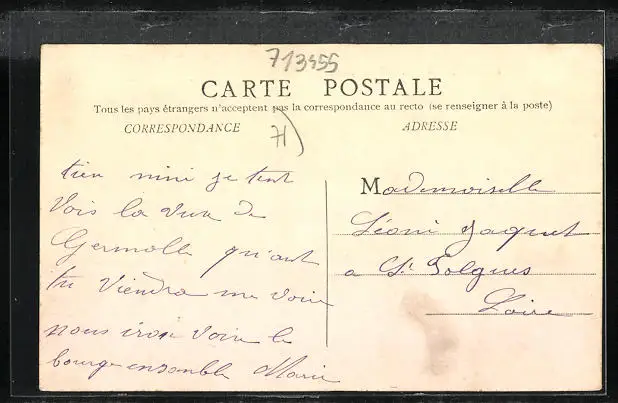 713455
CARTE POSTALE
Tous les pays étrangers n'acceptent pas la correspondance au recto (se renseigner à la poste)
CORRESPONDANCE
ADRESSE
tien mini je tent
Vois la vue de
Germolle qu'ant
tu Viendra me voir
nous iron Voir le
bourge ensemble Marie
Mademoiselle
Léoni Jaquet
a St Polgues
Loire